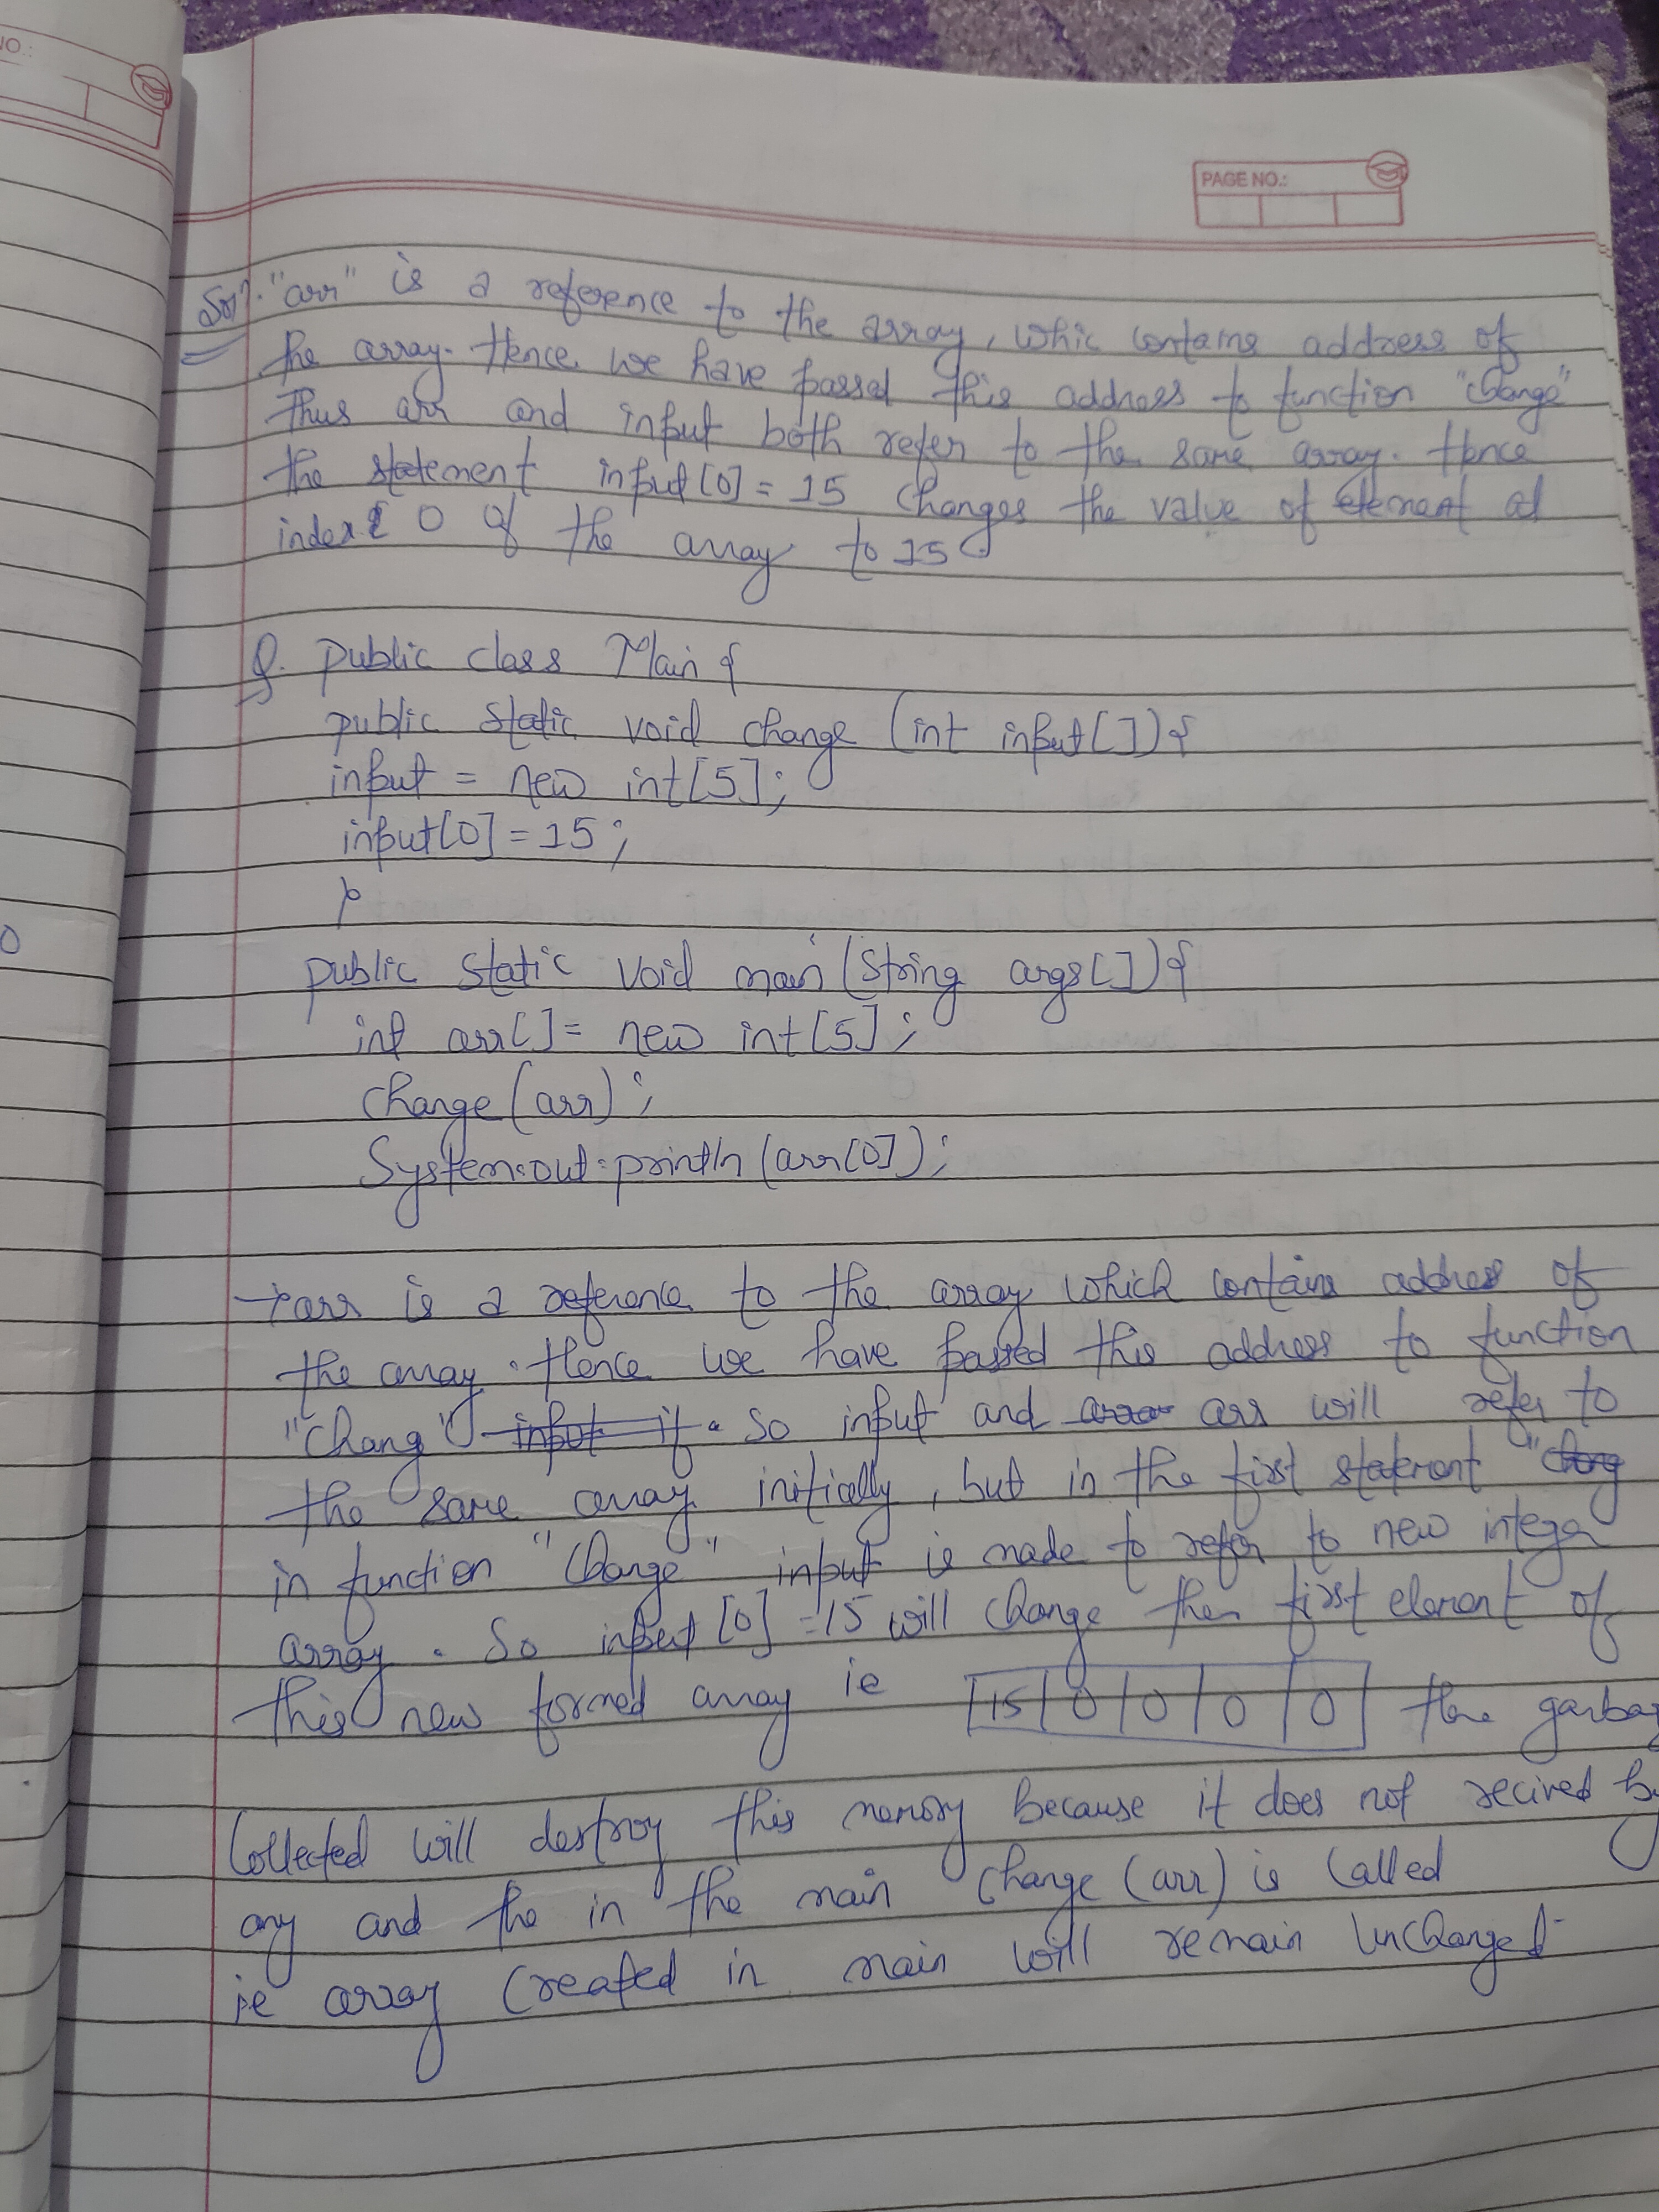 NO.:
PAGE NO.:
Sol?. "arr" is a reference to the array, whic contains address of
the array. Hence we have passed this address to function "change"
Thus arr and input both refer to the same array. Hence
the statement input[0] = 15 changes the value of element at
index 0 of the array to 15.
Q. public class Main {
public static void change (int input[]) {
input = new int[5];
input[0] = 15;
}
public static void main (String args[]) {
int arr[] = new int[5];
change (arr);
System.out.println (arr[0]);
→ arr is a reference to the array which contains address of
the array. Hence we have passed this address to function
"Chang" input it. So input and arror arr will refer to
the same array initially, but in the first statement "chang
in function "Change" input is made to refer to new integer
array. So input [0] = 15 will change the first element of
this new formed array ie 15 0 0 0 0 the garbag
Collected will destroy this memory because it does not recived by
any and the in the main change (arr) is called
ie array created in main will remain unchanged
0